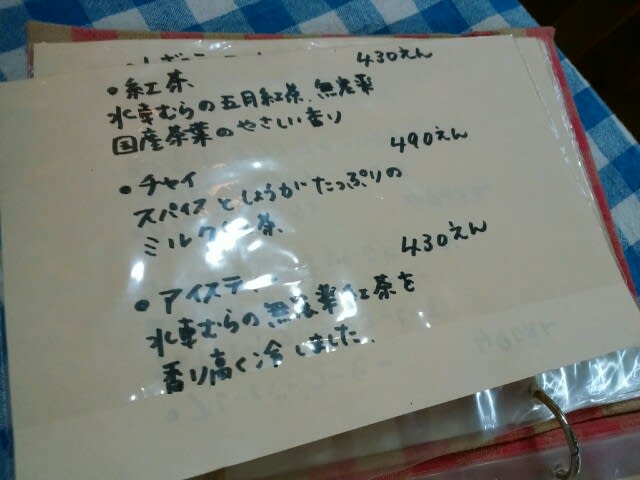 430えん
・紅茶
水車むらの五月紅茶、無農薬
国産茶葉のやさしい香り
490えん
・チャイ
スパイスとしょうがたっぷりの
ミルクティ
430えん
・アイスティー
水車むらの無農薬紅茶を
香り高く冷しました。